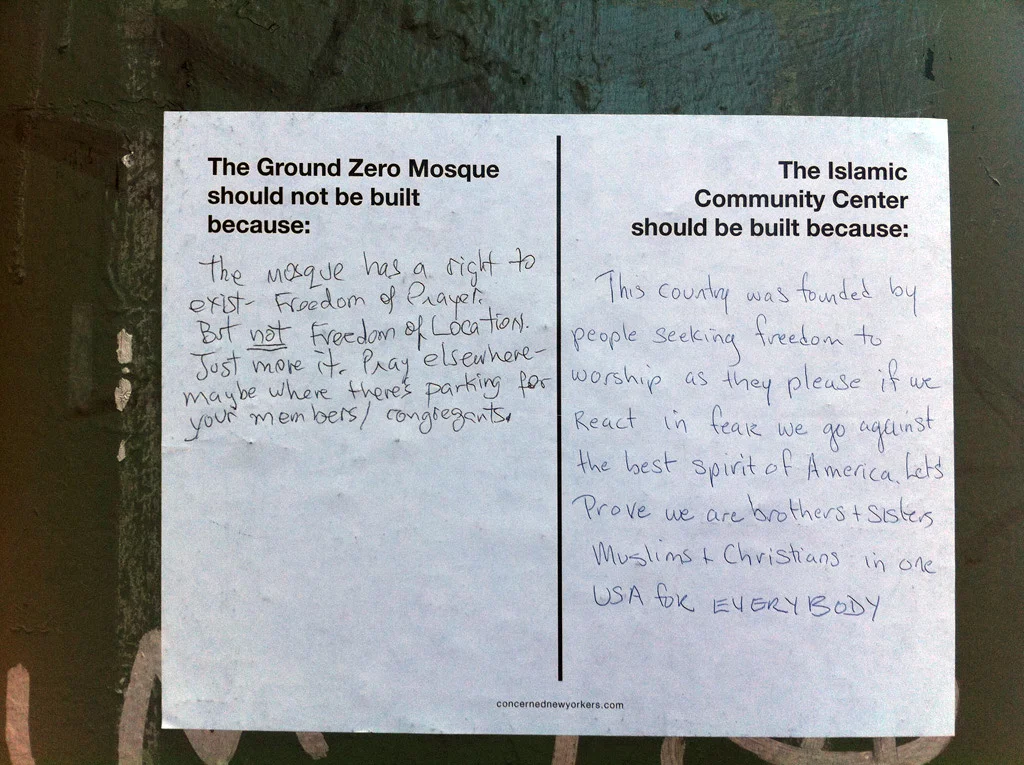 The Ground Zero Mosque
should not be built
because:
The mosque has a right to
exist- Freedom of Prayer.
But not Freedom of Location.
Just move it. Pray elsewhere-
maybe where there's parking for
your members/ congregants.
The Islamic
Community Center
should be built because:
This country was founded by
people seeking freedom to
worship as they please if we
React in fear we go against
the best spirit of America. Lets
Prove we are brothers + Sisters
Muslims + Christians in one
USA for EVERYBODY
concernednewyorkers.com